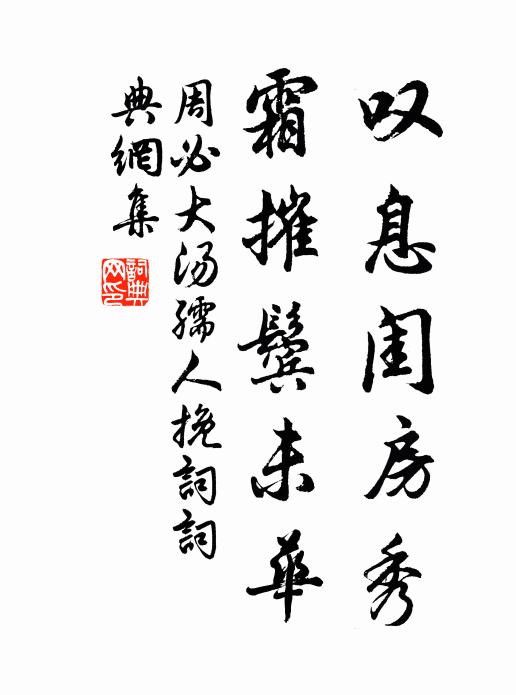 叹息闺房秀
霜摧鬓未华
周必大汤孺人挽词词
典網集
詞典
网印